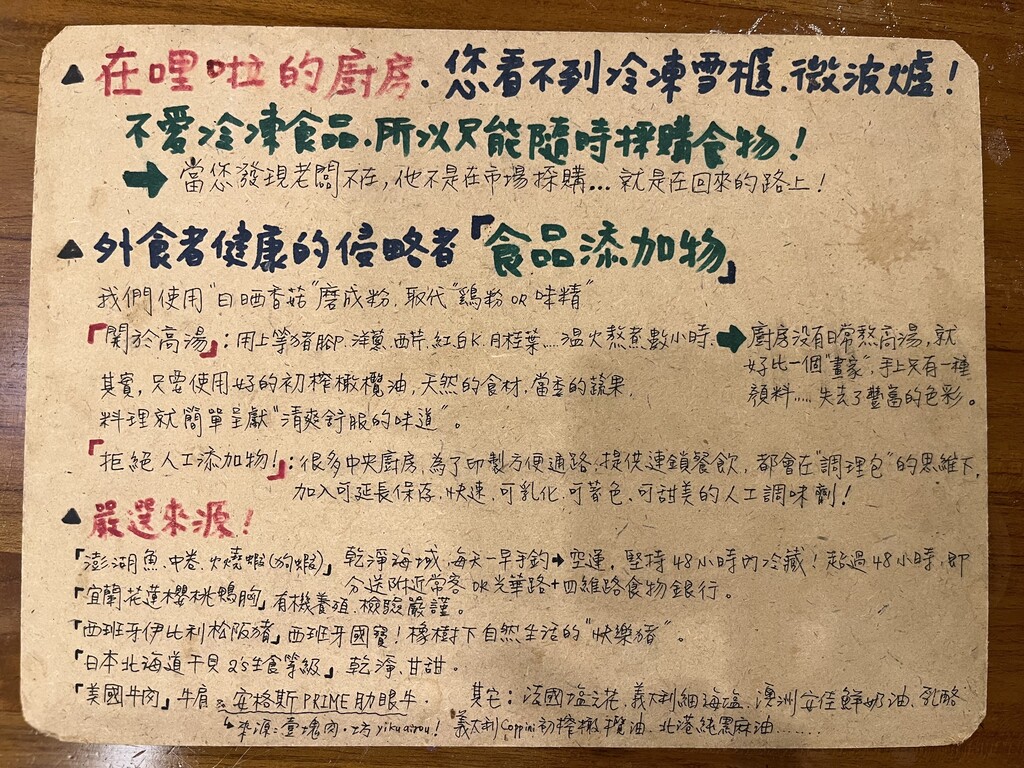 ▲在哩啦的廚房.您看不到冷凍雪櫃.微波爐!
不愛冷凍食品.所以只能隨時採購食物!
➡當您發現老闆不在,他不是在市場採購...就是在回來的路上!
▲外食者健康的侵略者「食品添加物」
我們使用"日晒香菇"磨成粉,取代"鷄粉OR味精"
「關於高湯」:用上等豬腳.洋蔥.西芹.紅白K.月桂葉....溫火熬煮數小時.➡廚房没有日常熬高湯,就
好比一個"畫家",手上只有一種
顏料.....失去了豐富的色彩。
其實,只要使用好的初榨橄欖油,天然的食材.當季的蔬果,
料理就簡單呈獻"清爽舒服的味道"。
「拒絕人工添加物!」:很多中央廚房,為了印製方便通路.提供連鎖餐飲,都會在"調理包"的思維下,
加入可延長保存.快速.可乳化.可著色.可甜美的人工調味劑!
▲嚴選來源!
「澎湖魚.中卷.火燒蝦(狗蝦)」乾淨海域,每天一早手釣➡空運,堅持48小時內冷藏!超過48小時,即
分送附近常客OR光華路+四維路食物銀行。
「宜蘭花蓮櫻桃鴨胸」有機養殖.檢驗嚴謹。
「西班牙伊比利松阪豬」西班牙國寶!橡樹下自然生活的"快樂豬"。
「日本北海道干貝2S生食等級」乾淨.甘甜.
「美國牛肉」牛肩&安格斯PRIME肋眼牛.
↳來源:壹塊肉.工坊yikuairou!
其它:法國塩之花,義大利細海塩.澳洲安佳鮮奶油.乳酪
義大利Coppini初榨橄欖油.北港純黑麻油........